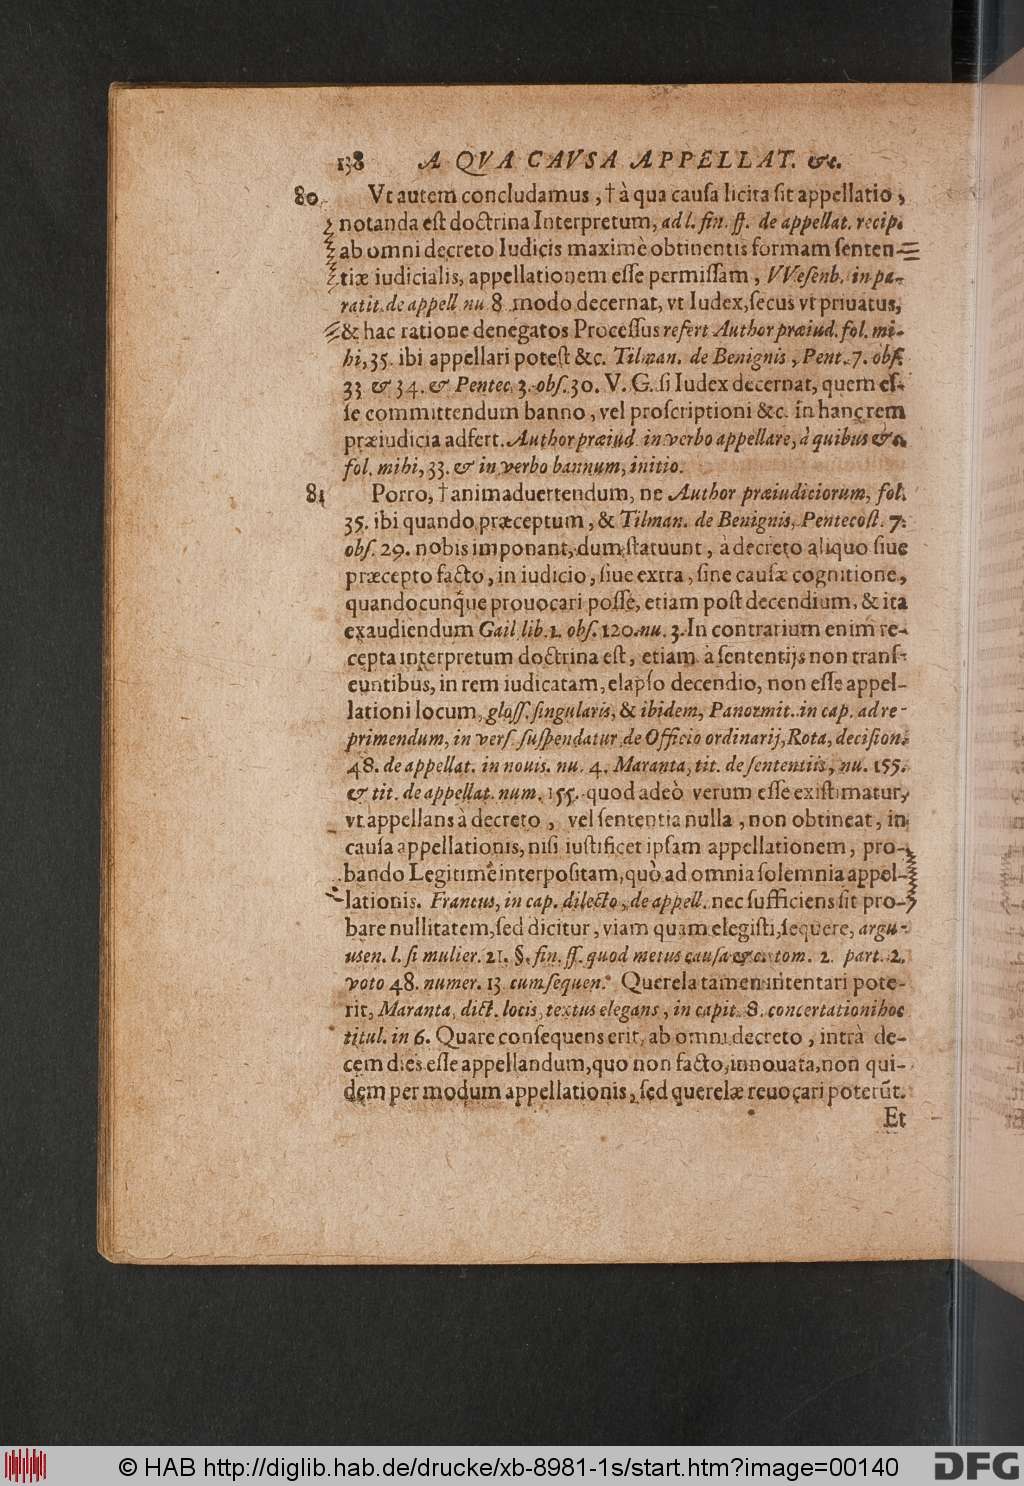 138 A QVA CAVSA APPELLAT. &c.
80 Vt autem concludamus, † à qua cauſa licita ſit appellatio,
notanda eſt doctrina Interpretum, ad l. fin. ff. de appellat. recip.
ab omni decreto Iudicis maximè obtinentis formam ſenten-
tiæ iudicialis, appellationem eſſe permiſſam, VVeſenb. in pa-
ratit. de appell nu 8 modo decernat, vt Iudex, ſecus vt priuatus,
& hac ratione denegatos Proceſſus refert Author præiud. fol. mi-
hi, 35. ibi appellari poteſt &c. Tilman. de Benignis, Pent. 7. obſ.
33 & 34. & Pentec. 3. obſ. 30. V. G. ſi Iudex decernat, quem eſ-
ſe committendum banno, vel proſcriptioni &c. in hanc rem
præiudicia adfert. Author præiud. in verbo appellare, à quibus &c.
fol. mihi, 33. & in verbo bannum, initio.
81 Porro, † animaduertendum, ne Author præiudiciorum, fol.
35. ibi quando præceptum, & Tilman. de Benignis, Pentecoſt. 7.
obſ. 29. nobis imponant, dum ſtatuunt, à decreto aliquo ſiue
præcepto facto, in iudicio, ſiue extra, ſine cauſæ cognitione,
quandocunq́ue prouocari poſſe, etiam poſt decendium, & ita
exaudiendum Gail lib. 1. obſ. 120. nu. 3. In contrarium enim re-
cepta interpretum doctrina eſt, etiam à ſententijs non tranſ-
euntibus, in rem iudicatam, elapſo decendio, non eſſe appel-
lationi locum, gloſſ. ſingularis, & ibidem, Panormit. in cap. ad re-
primendum, in verſ. ſuſpendatur de Officio ordinarij, Rota, deciſion.
48. de appellat. in nouis. nu. 4. Maranta, tit. de ſententiis, nu. 155.
& tit. de appellat. num. 155. quod adeò verum eſſe exiſtimatur,
vt appellans à decreto, vel ſententia nulla, non obtineat, in
cauſa appellationis, niſi iuſtificet ipſam appellationem, pro-
bando Legitimè interpoſitam, quò ad omnia ſolemnia appel-
lationis. Francus, in cap. dilecto, de appell. nec ſufficiens ſit pro-
bare nullitatem, ſed dicitur, viam quam elegiſti, ſequere, argu-
uſen. l. ſi mulier. 21. §. fin. ff. quod metus cauſa & c. tom. 2. part. 2.
voto 48. numer. 13 cum ſequen. Querela tamen intentari pote-
rit, Maranta, dict. locis, textus elegans, in capit. 8. concertationi hoc
titul. in 6. Quare conſequens erit, ab omni decreto, intrà de-
cem dies eſſe appellandum, quo non facto, innouata, non qui-
dem per modum appellationis, ſed querelæ reuocari poterũt.
Et
© HAB http://diglib.hab.de/drucke/xb-8981-1s/start.htm?image=00140
DFG